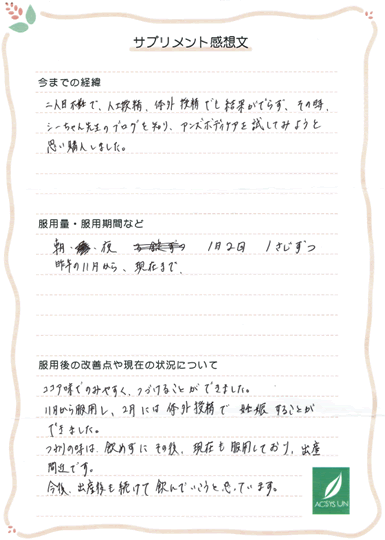 サプリメント感想文
今までの経緯
二人目不妊で、人工授精、体外授精でも結果がでらず、その時、
シーちゃん先生のブログを知り、アンズボディケアを試してみようと
思い購入しました。
服用量・服用期間など
朝・夜 1日2回 1さじずつ
昨年の11月から、現在まで、
服用後の改善点や現在の状況について
ココア味でのみやすく、つづけることができました。
11月から服用し、2月には体外授精で妊娠することが
できました。
つわりの時は、飲めずにその後、現在も服用しており、出産
間近です。
今後、出産後も続けて飲んでいこうと思っています。
ACSYS UN